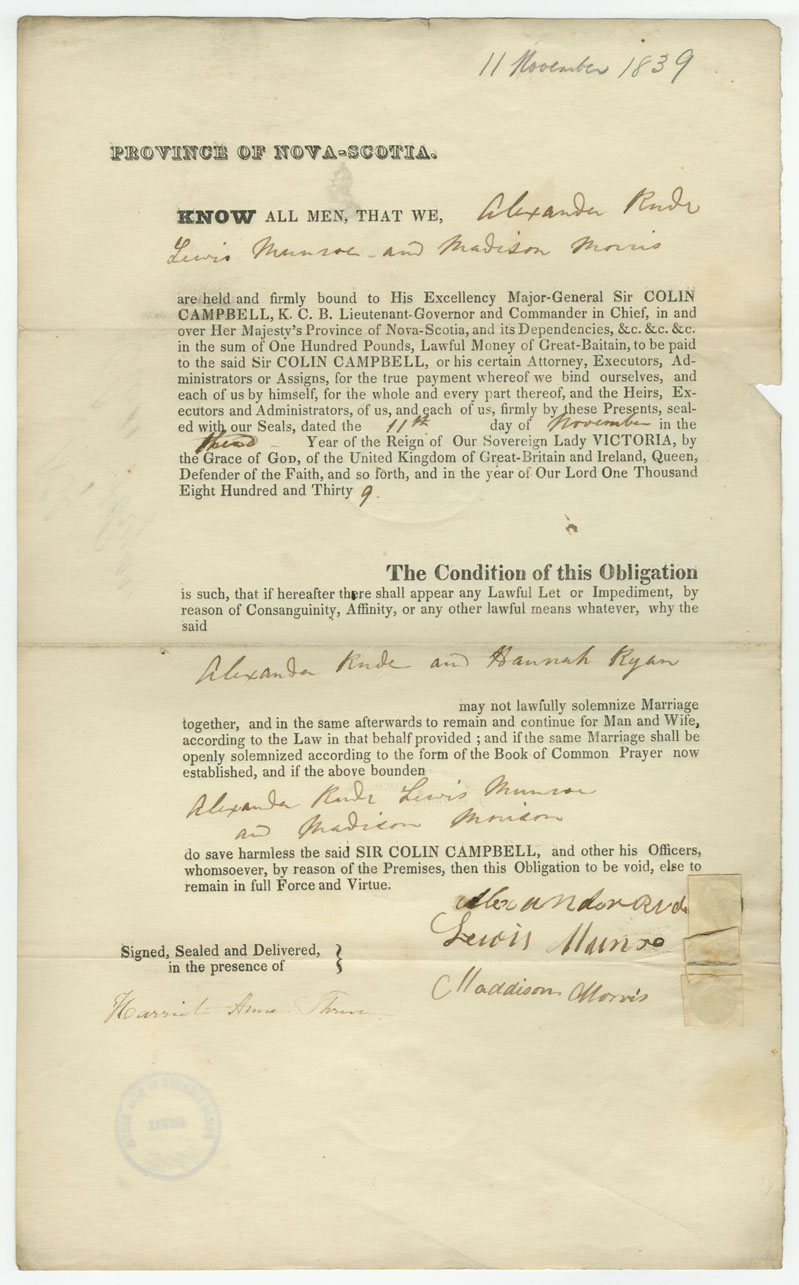 11 November 1839
PROVINCE OF NOVA-SCOTIA.
KNOW ALL MEN, THAT WE, Alexander Rude
Lewis Munroe and Madison Morris
are held and firmly bound to His Excellency Major-General Sir COLIN
CAMPBELL, K. C. B. Lieutenant-Governor and Commander in Chief, in and
over Her Majesty's Province of Nova-Scotia, and its Dependencies, &c. &c. &c.
in the sum of One Hundred Pounds, Lawful Money of Great-Baitain, to be paid
to the said Sir COLIN CAMPBELL, or his certain Attorney, Executors, Ad-
ministrators or Assigns, for the true payment whereof we bind ourselves, and
each of us by himself, for the whole and every part thereof, and the Heirs, Ex-
ecutors and Administrators, of us, and each of us, firmly by these Presents, seal-
ed with our Seals, dated the 11th day of November in the
third Year of the Reign of Our Sovereign Lady VICTORIA, by
the Grace of GOD, of the United Kingdom of Great-Britain and Ireland, Queen,
Defender of the Faith, and so forth, and in the year of Our Lord One Thousand
Eight Hundred and Thirty 9.
The Condition of this Obligation
is such, that if hereafter there shall appear any Lawful Let or Impediment, by
reason of Consanguinity, Affinity, or any other lawful means whatever, why the
said
Alexander Rude and Hannah Ryan
may not lawfully solemnize Marriage
together, and in the same afterwards to remain and continue for Man and Wife,
according to the Law in that behalf provided ; and if the same Marriage shall be
openly solemnized according to the form of the Book of Common Prayer now
established, and if the above bounden
Alexander Rude Lewis Munroe
and Madison Morison
do save harmless the said SIR COLIN CAMPBELL, and other his Officers,
whomsoever, by reason of the Premises, then this Obligation to be void, else to
remain in full Force and Virtue.
Alexander Rude
Lewis Munro
Signed, Sealed and Delivered,
in the presence of
Maddison Morris
Harriet Anne